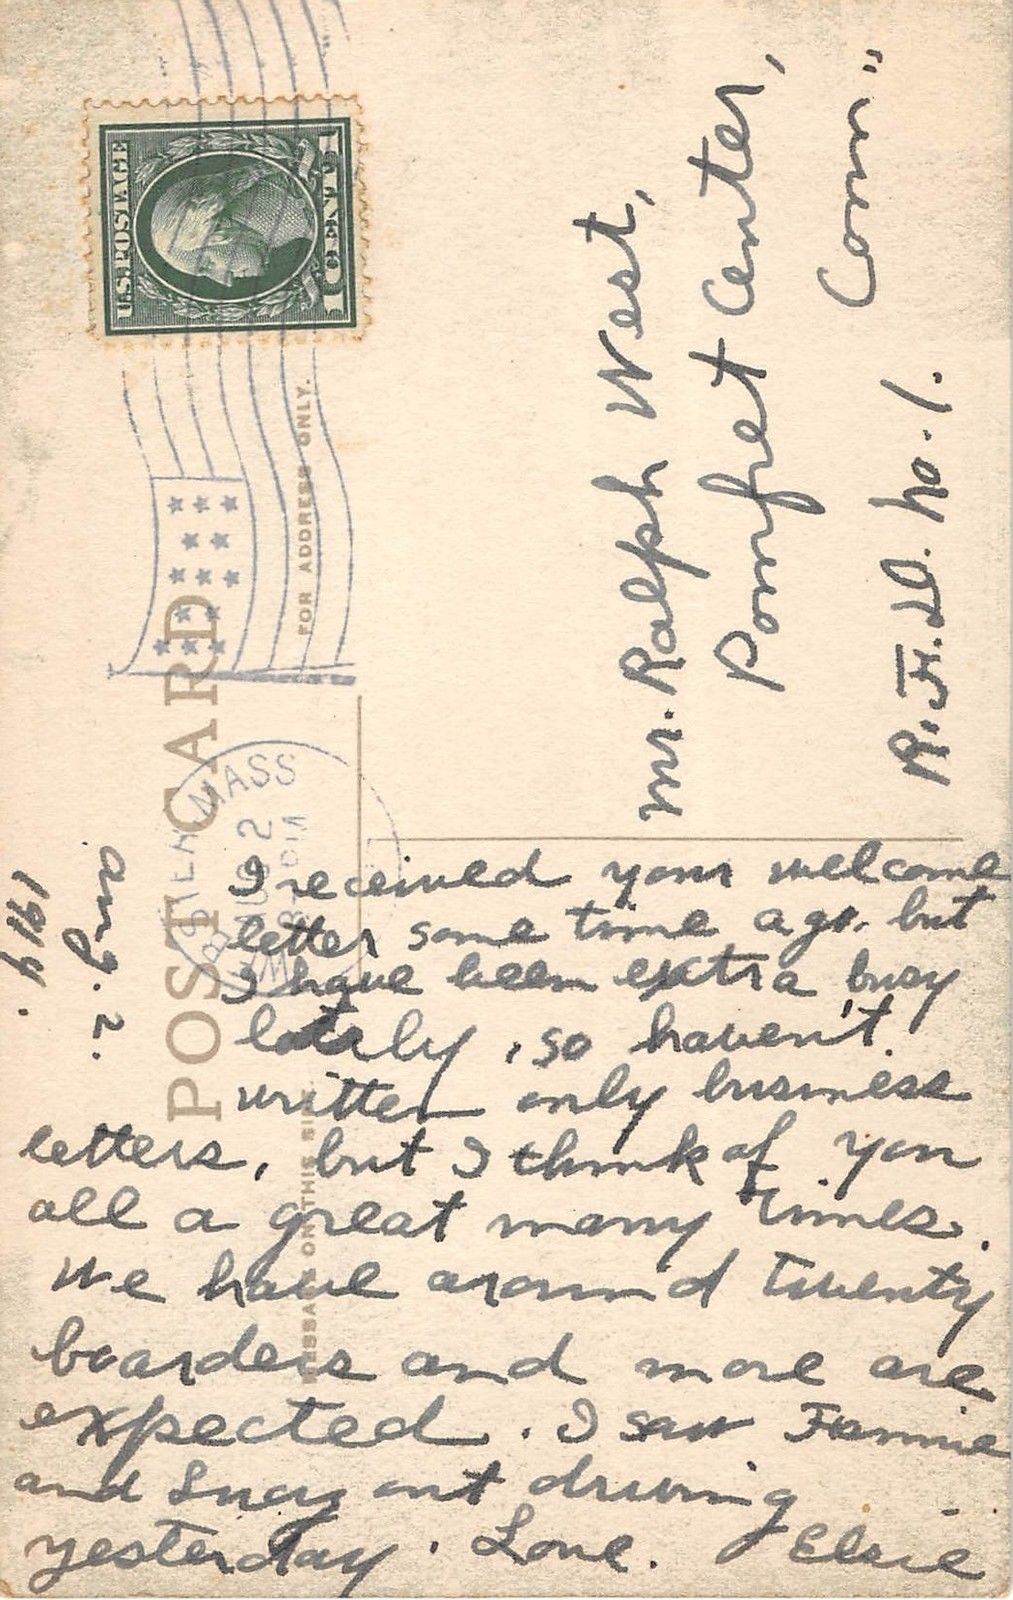 U.S.POSTAGE
ONE CENT
POST CARD
FOR ADDRESS ONLY.
MESSAGE ON THIS SIDE.
MASS
AUG 2
Aug. 2.
1914.
I received your welcome
letter some time ago. but
I have been extra busy
lately, so haven't
written only business
letters, but I think of you
all a great many times.
We have around twenty
boarders and more are
expected. I saw Fannie
and Lucy out driving
yesterday. Love. Elsie
Mr. Ralph West,
Pomfret Center,
Conn"
R.F.D. No. 1.